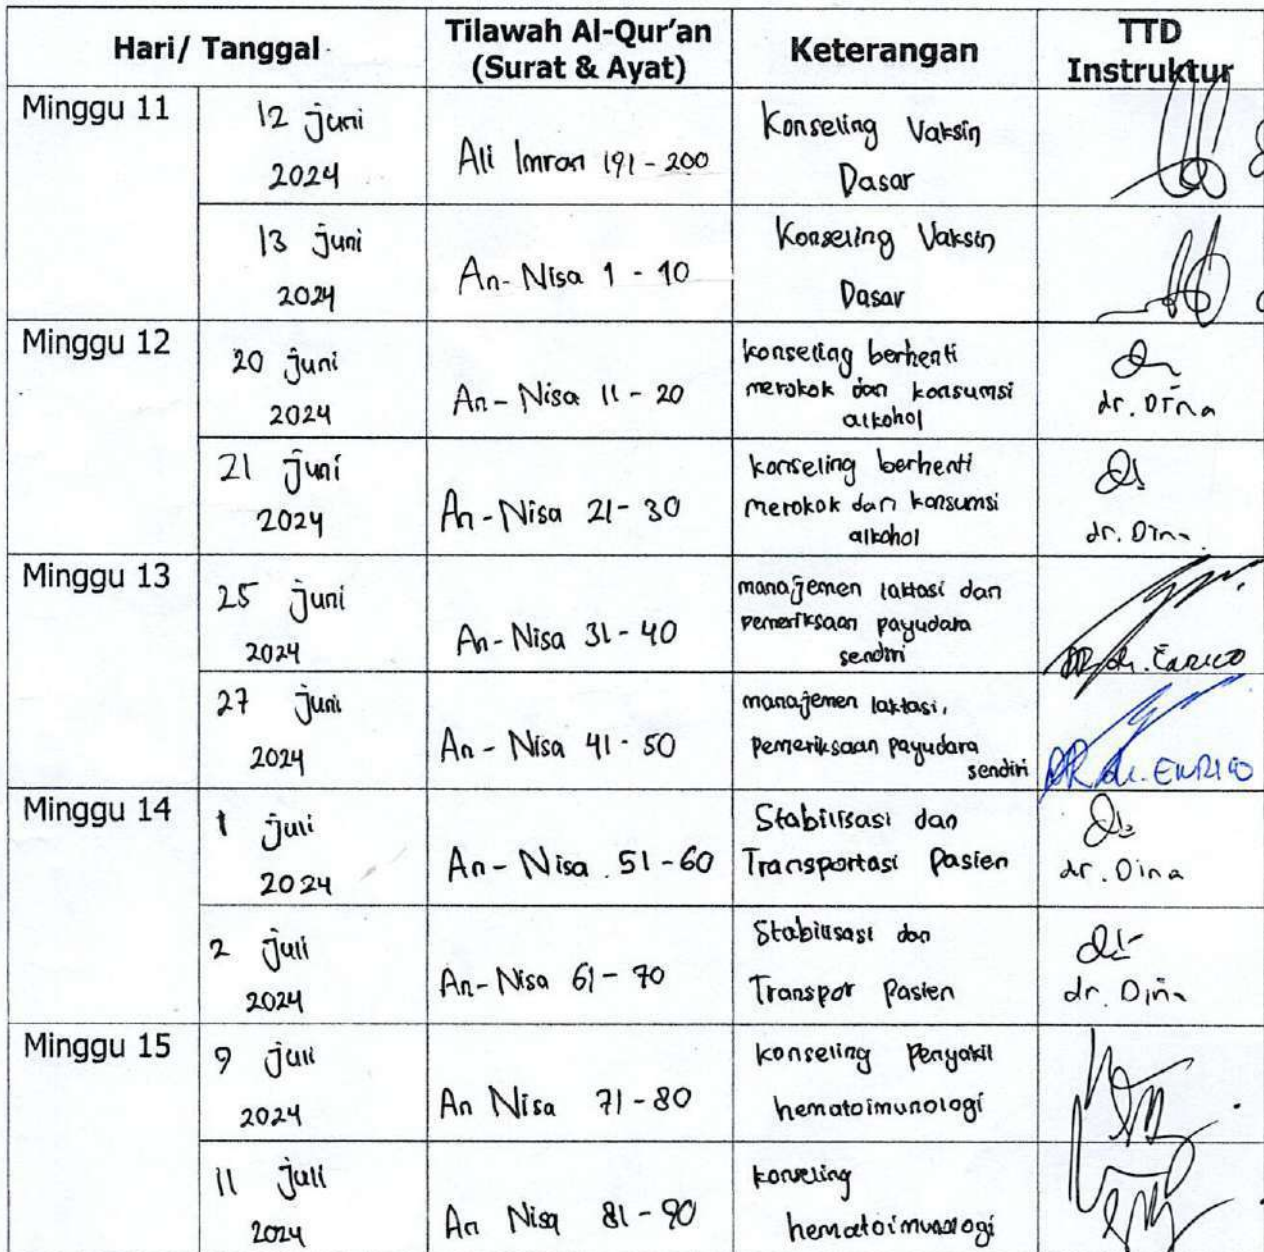 Hari/ Tanggal
Tilawah Al-Qur'an
(Surat & Ayat)
Keterangan
TTD
Instruktur
Minggu 11
12 juni
2024
Ali Imran 191 - 200
Konseling Vaksin
Dasar
13 juni
2024
An- Nisa 1 - 10
Konseling Vaksin
Dasar
Minggu 12
20 juni
2024
An - Nisa 11 - 20
konseling berhenti
merokok dan konsumsi
alkohol
dr. Dina
21 juni
2024
An - Nisa 21 - 30
konseling berhenti
merokok dan konsumsi
alkohol
dr. Dina
Minggu 13
25 juni
2024
An - Nisa 31 - 40
manajemen laktasi dan
pemeriksaan payudara
sendiri
DR. dr. Enrico
27 juni
2024
An - Nisa 41 - 50
manajemen laktasi,
pemeriksaan payudara
sendiri
DR. dr. ENRICO
Minggu 14
1 juli
2024
An - Nisa . 51 - 60
Stabilisasi dan
Transportasi Pasien
dr. Dina
2 juli
2024
An - Nisa 61 - 70
Stabilisasi dan
Transpor Pasien
dr. Dina
Minggu 15
9 juli
2024
An Nisa 71 - 80
konseling Penyakit
hematoimunologi
11 juli
2024
An Nisa 81 - 90
konseling
hematoimunologi